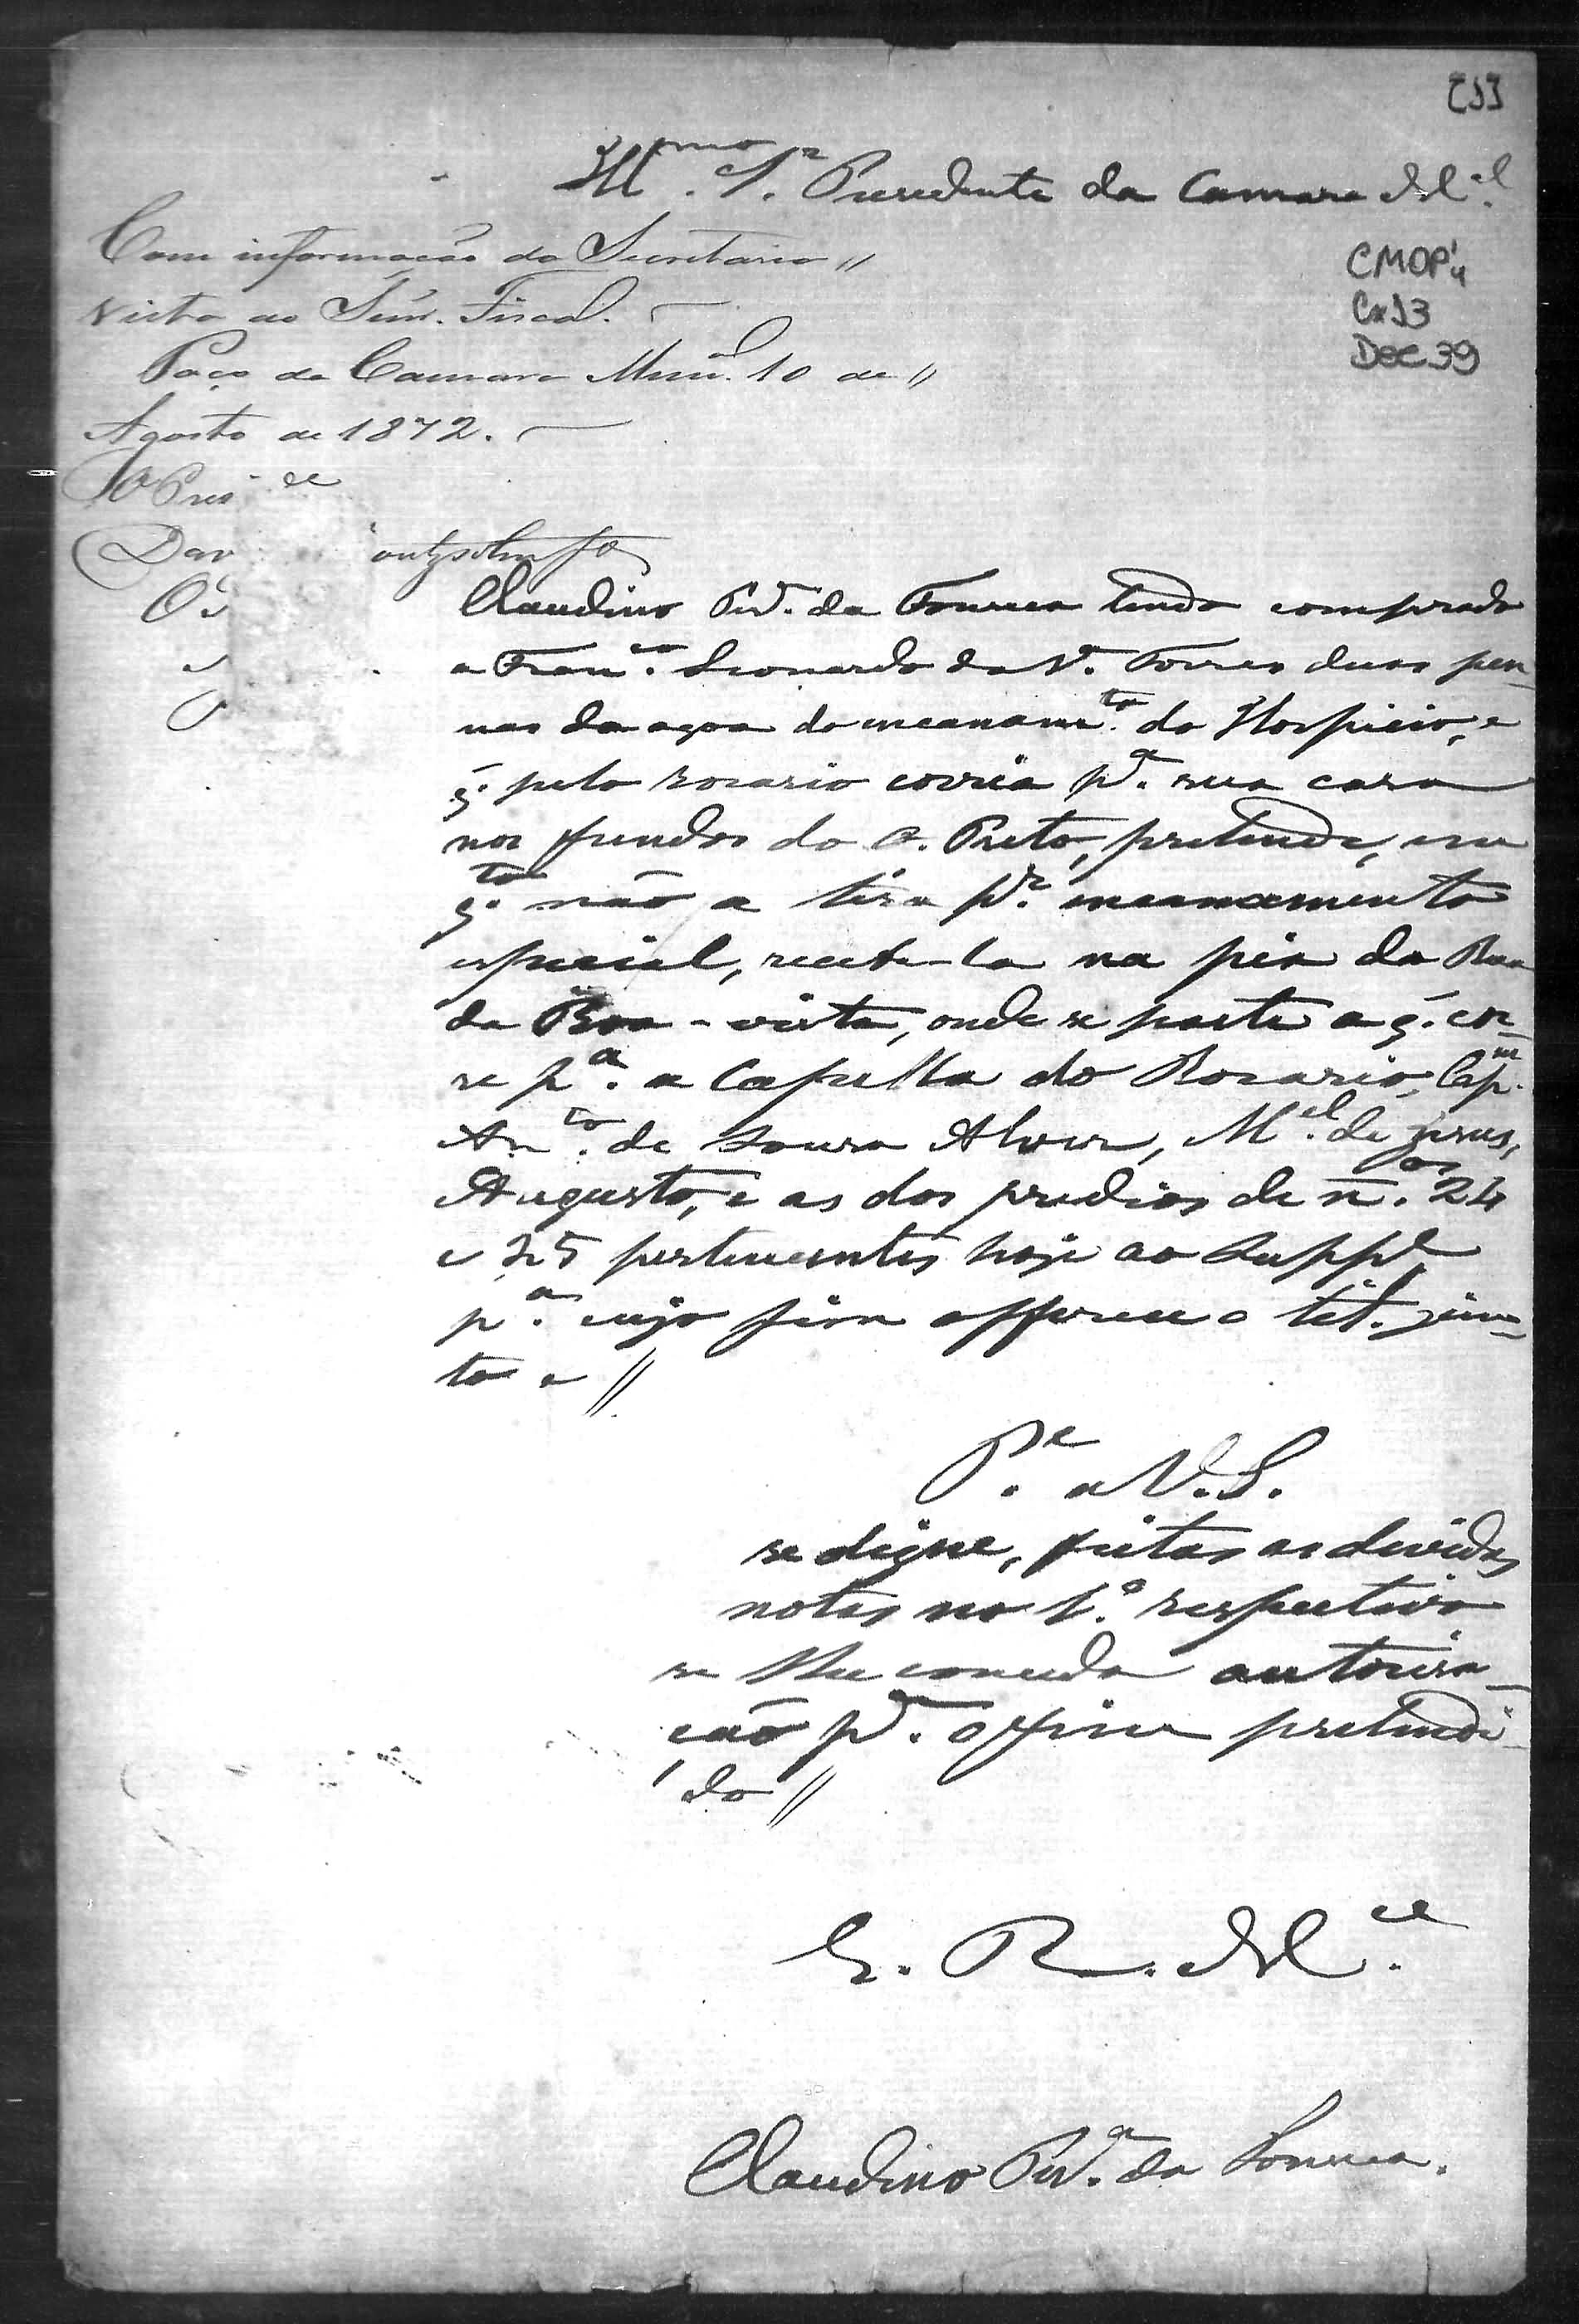 C13
Ill.mo Sr. Presidente da Camara M.al
CMOP 4
Cx 13
Doc 39
Com informação do Secretario //
vista ao Snr. Fiscal.
Paço da Camara Mun. 10 de //
Agosto de 1872.
O Pres
Dav
Claudino Per.a da Fonseca tendo comprado
a Fran.co Leonardo da S.a Torres duas pen-
nas da agoa do encanam.to do Hospicio, e
q. pelo rosario corria p.a sua casa
nos fundos do O. Preto, pretende, em
q.to não a tira p.r encanamento
especial, recebe-la na pia da Rua
da Boa-vista, onde se parte a q. cor-
re p.a a Capella do Rosario, Cap.m
An.to de Souza Alves, M.el de Jesus,
Augusto, e as dos predios de n.os 24
e 25 pertencentes hoje ao Supp.e
p.a cujo fim offerece o tit. jun-
to e //
P.e a V.S.
se digne, feitas as devidas
notas no L.o respectivo
se lhe conceda autorisa-
ção p.a o fim pretendi-
do //
E. R. M.ce
Claudino Per.a da Fonseca.